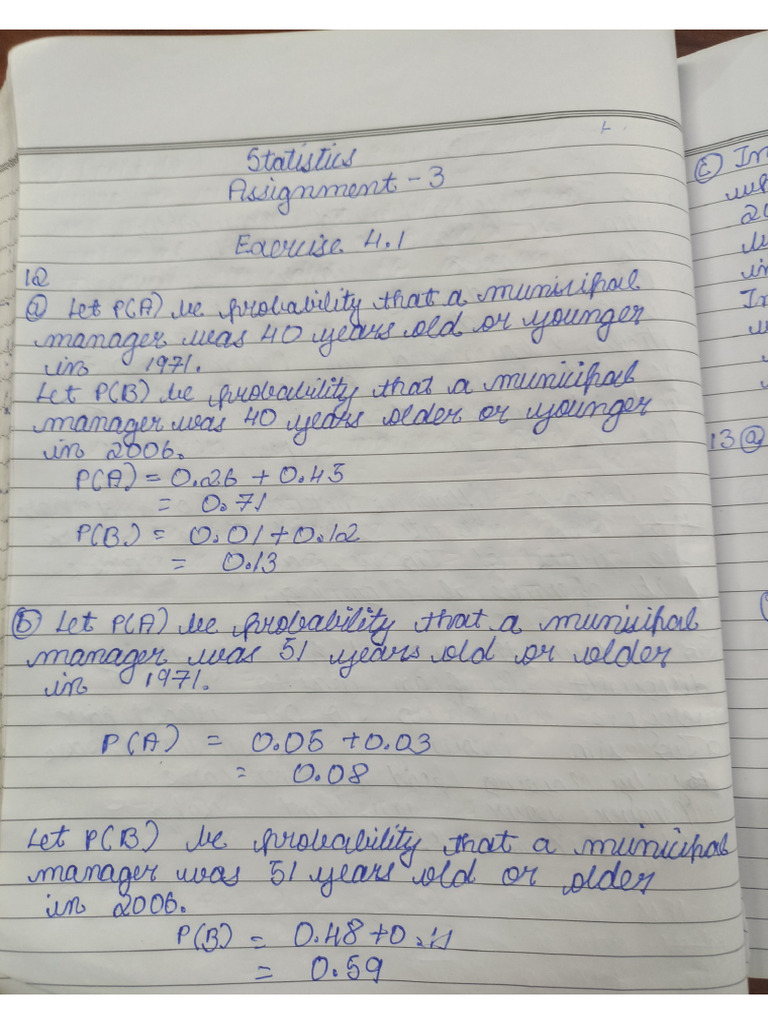 Statistics
Assignment - 3
Exercise 4.1
12
(a) Let P(A) be probability that a municipal
manager was 40 years old or younger
in 1971.
Let P(B) be probability that a municipal
manager was 40 years older or younger
in 2006.
P(A) = 0.26 + 0.45
= 0.71
P(B) = 0.01 + 0.12
= 0.13
(b) Let P(A) be probability that a municipal
manager was 51 years old or older
in 1971.
P(A) = 0.05 + 0.03
= 0.08
Let P(B) be probability that a municipal
manager was 51 years old or older
in 2006.
P(B) = 0.48 + 0.11
= 0.59
(c) In
20
in
In
13 (a)